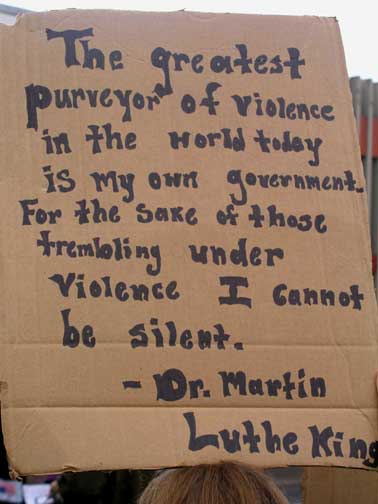 The greatest
purveyor of violence
in the world today
is my own government.
For the sake of those
trembling under
violence I cannot
be silent.
- Dr. Martin
Luthe King